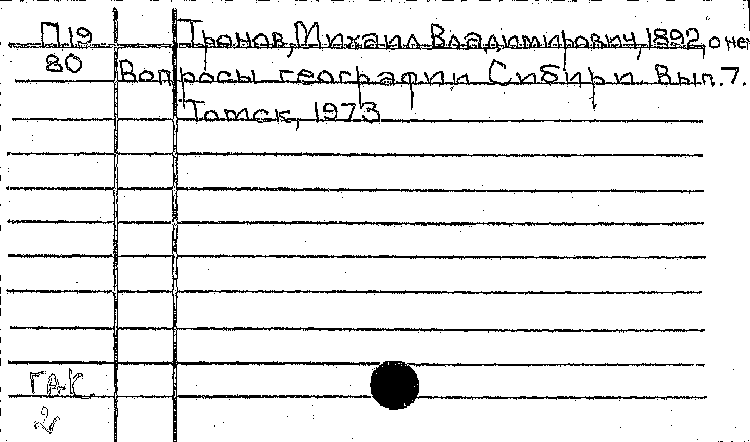 П19 Тронов, Михаил Владимирович, 1892, о нем
80 Вопросы географии Сибири. Вып. 7.
Томск, 1973
ГАК
2